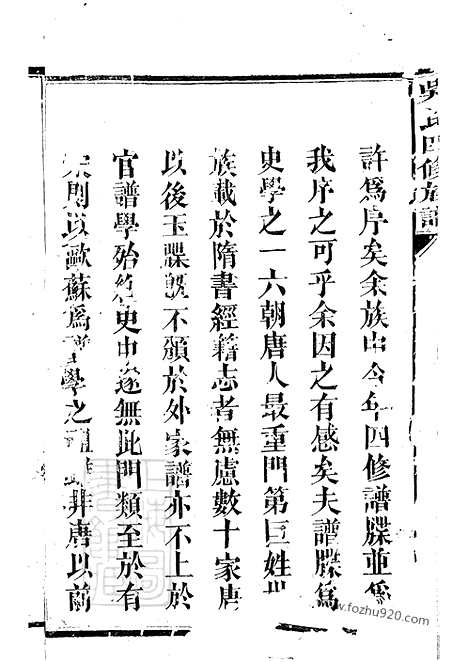 吳氏四修族譜
許爲序矣余族中今年四修譜牒並爲
我序之可乎余因之有感矣夫譜牒爲
史學之一六朝唐人最重門第巨姓世
族載於隋書經籍志者無慮數十家唐
以後玉牒旣不頒於外家譜亦不上於
官譜學始絕史中遂無此門類至於有
宋間以歐蘇爲譜學之 非唐以前
www.fozhu920.com